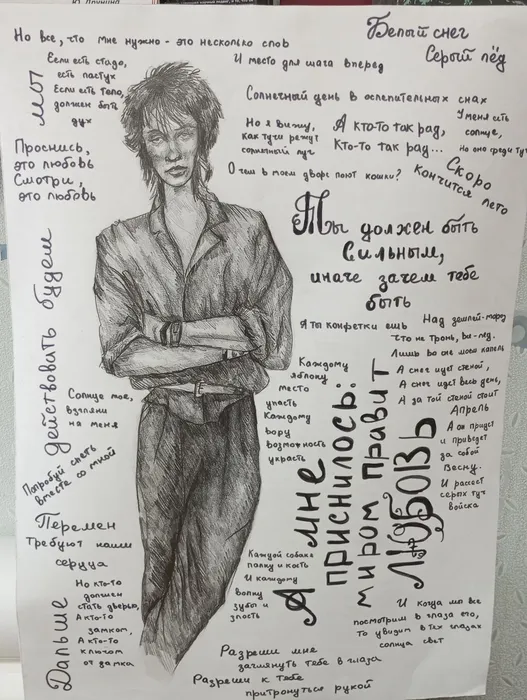 Но все, что мне нужно - это несколько слов
И место для шага вперед
Белый снег
Серый лёд
Если есть стадо,
есть пастух
Если есть тело,
должен быть
дух
МЫ
Солнечный день в ослепительных снах
Но я вижу,
как тучи режут
солнечный луч
А кто-то так рад,
Кто-то так рад...
У меня есть
солнце,
но оно среди туч
Проснись,
это любовь
Смотри,
это любовь
О чем в моем дворе поют кошки?
Скоро
кончится лето
Ты должен быть
Сильным,
иначе зачем тебе
быть
действовать будем
Я ты конфетки ешь
Над землей-мороз
Что не тронь, вы-лед.
Лишь во сне моем капель
А снег идет стеной,
А снег идет весь день,
А за той стеной стоит
Апрель
А он придет
и приведет
за собой
Весну.
И рассеет
серых туч
войска
Каждому
яблоку
место
упасть
Каждому
вору
возможность
украсть
Солнце мое,
взгляни
на меня
Попробуй спеть
вместе со мной
А мне
приснилось:
миром правит
ЛЮБОВЬ
Перемен
Требуют наши
сердца
Каждой собаке
палку и кость
И каждому
волку
зубы и
злость
Дальше
Но кто-то
должен
стать дверью,
А кто-то
замком,
А кто-то
ключом
от замка
И когда мы все
посмотрим в глаза его,
То увидим в тех глазах
солнца свет
Разреши мне
заглянуть тебе в глаза
Разреши к тебе
притронуться рукой